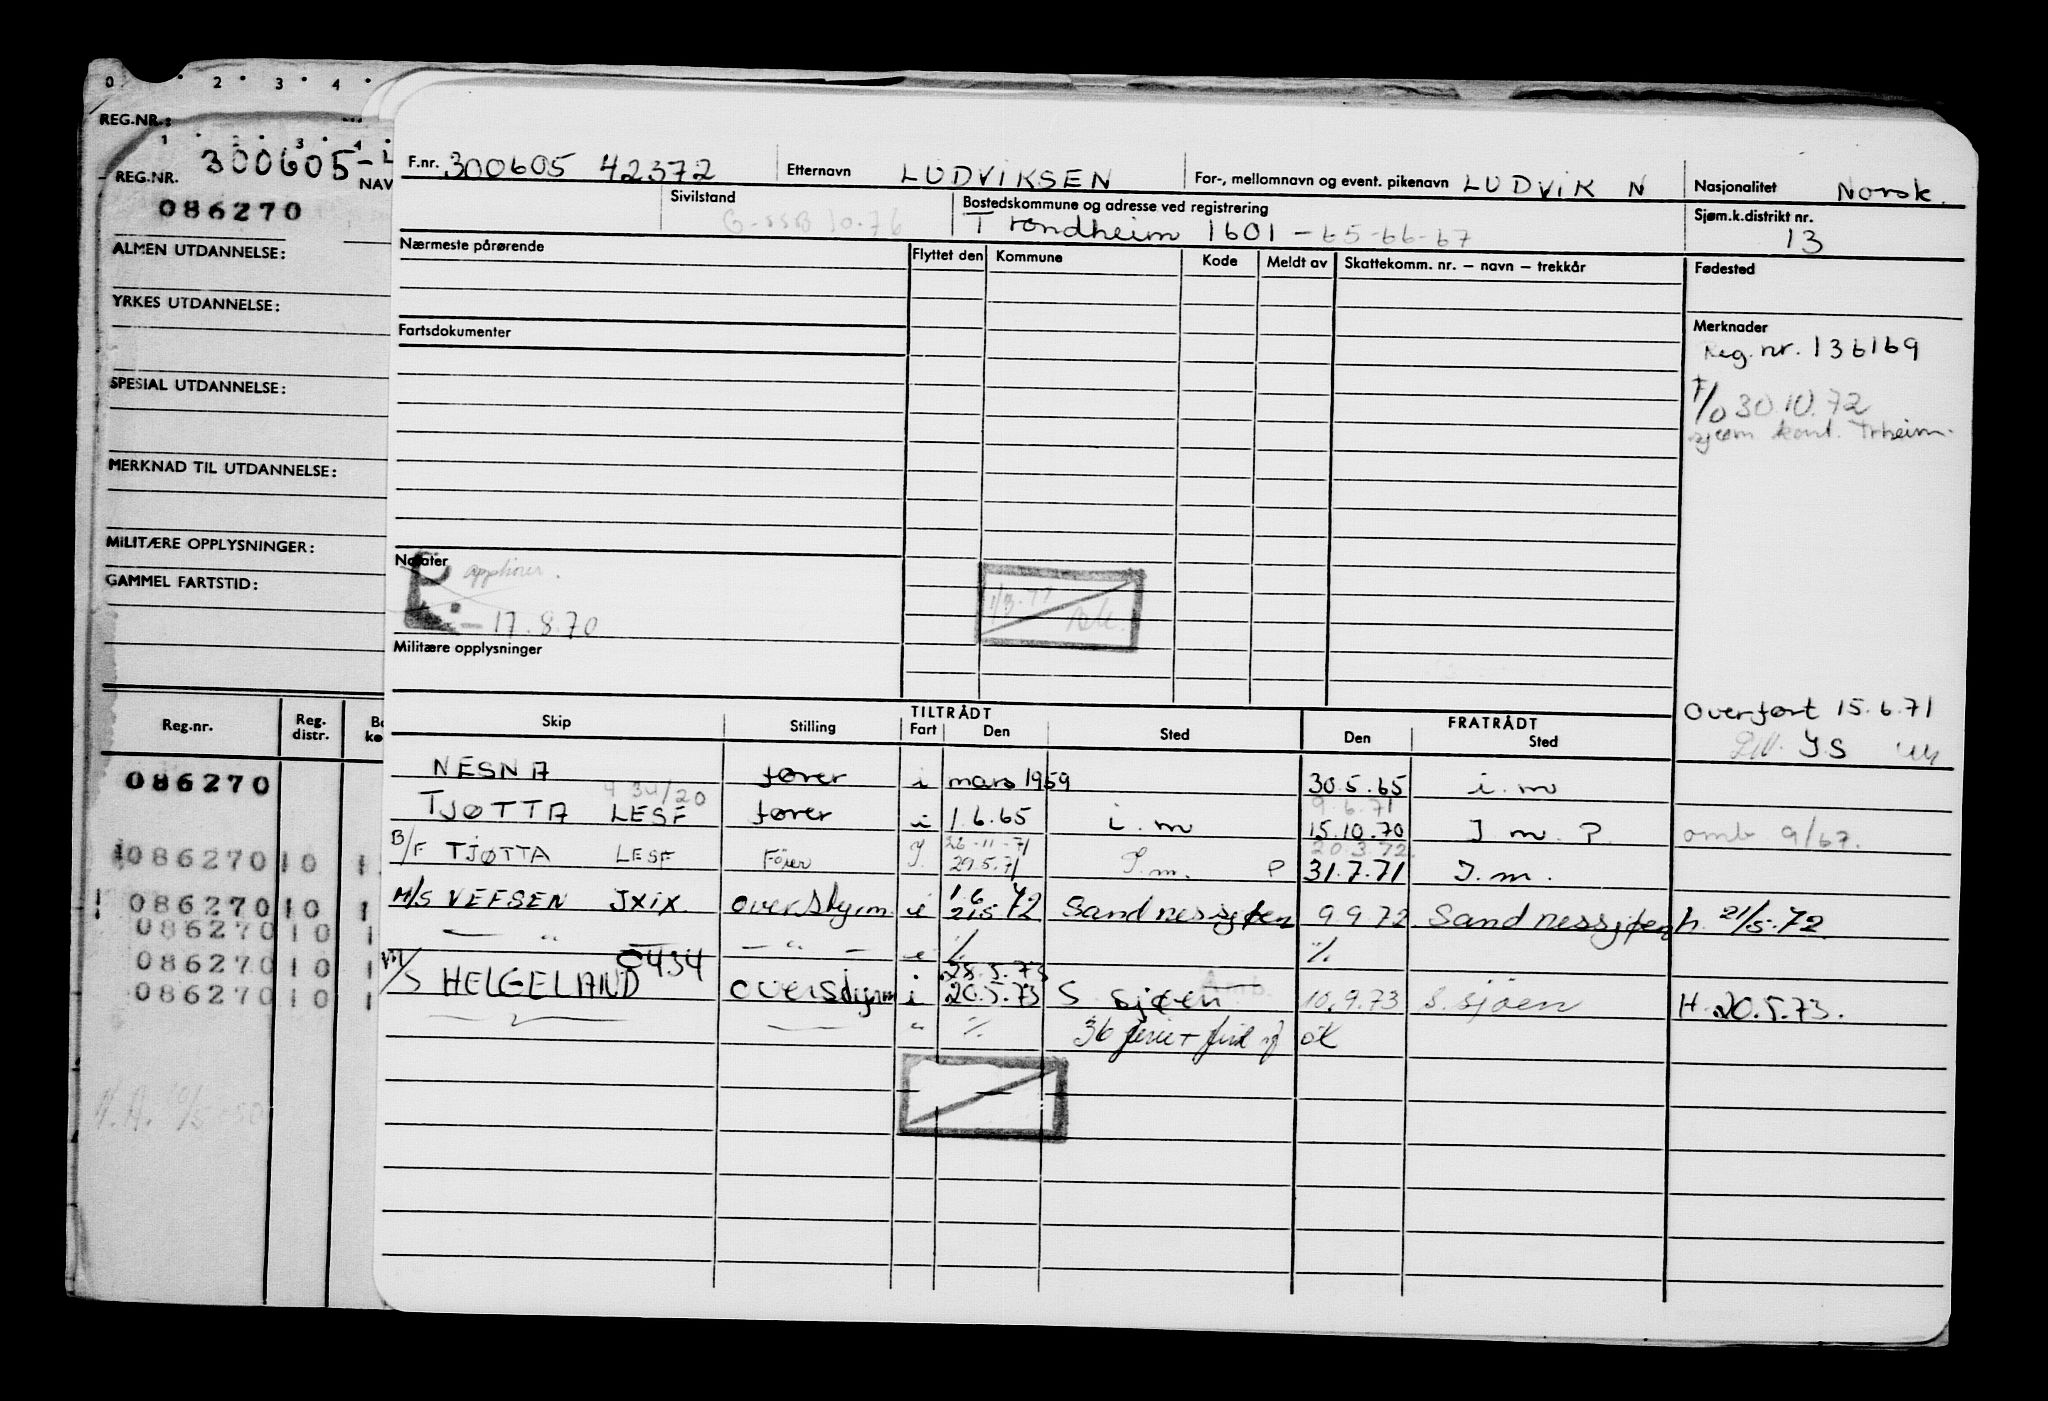 0 2 3 4
REG.NR.:
1 2 3 4
REG.NR. 300605-L
NAV
086270
ALMEN UTDANNELSE:
YRKES UTDANNELSE:
SPESIAL UTDANNELSE:
MERKNAD TIL UTDANNELSE:
MILITÆRE OPPLYSNINGER:
GAMMEL FARTSTID:
Reg.nr. Reg. distr.
086270
086270 10 1
086270 10 1
086270 10 1
086270 10 1
086270 10
F.nr. 300605 42372 Etternavn LUDVIKSEN For-, mellomnavn og event. pikenavn LUDVIK N Nasjonalitet Norsk.
Sivilstand G-SSB 10.76 Bostedskommune og adresse ved registrering Sjøm.k.distrikt nr.
Trondheim 1601 - 65-66-67 13
Nærmeste pårørende Flyttet den Kommune Kode Meldt av Skattekomm. nr. – navn – trekkår Fødested
Fartsdokumenter Merknader
Reg.nr. 136169
F/O 30.10.72
sjøm kont. Trheim.
Notater opphører.
1/3.77
17.8.70
Militære opplysninger
Overført 15.6.71
TILTRÅDT FRATRÅDT
Skip Stilling Fart Den Sted Den Sted
NESNA fører i mars 1959 30.5.65 i.m
434/20 9.6.71
TJØTTA LESF fører i 1.6.65 i.m 15.10.70 I m. P. omb. 9/67.
26-11-71 20.3.72.
B/F TJØTTA LESF Fører I. 29.5.71 I.m. P 31.7.71 I.m.
1.6
M/S VEFSEN JXIX overstyrm i 21.5 72 Sandnessjøen 9.9.72 Sandnessjøen h. 21/5-72
— " — — " — i % %
0434 28.5.73
M/S HELGELAND overstyrm i 20.5.73 S sjøen 10.9.73 S.sjöen H. 20.5.73.
" % 36 ferie + ok